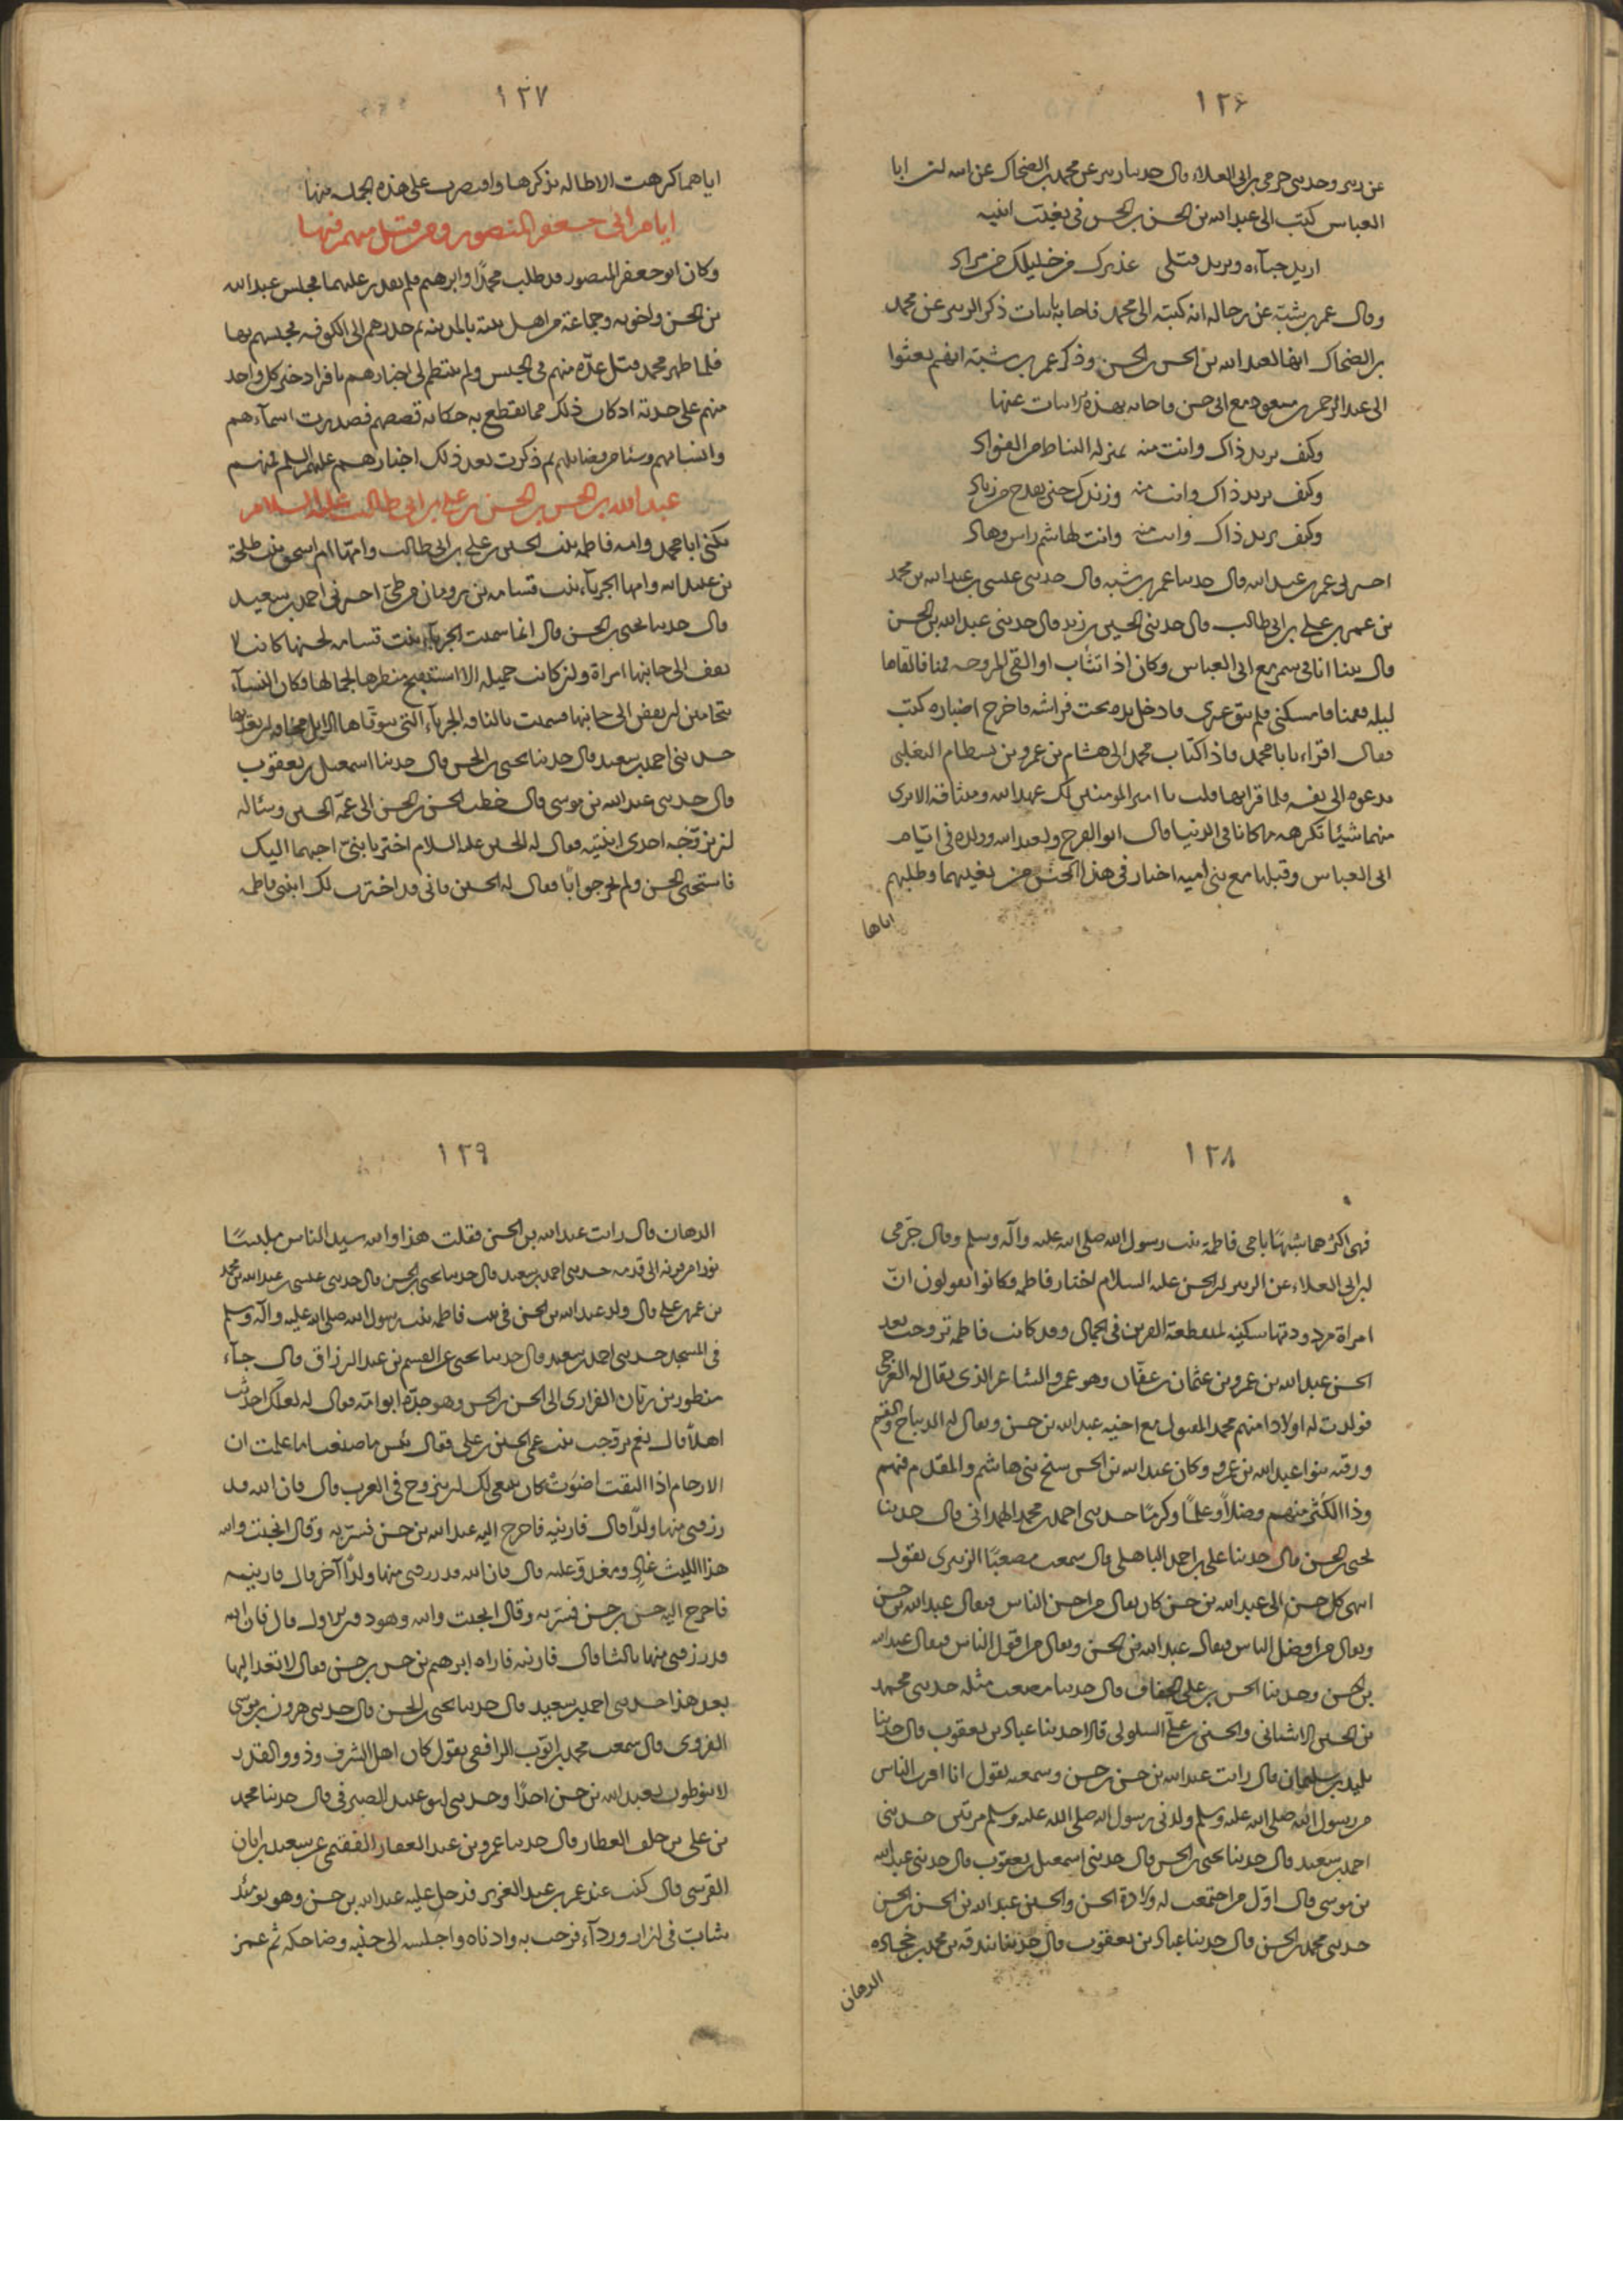 ١٢٦
عن زبير وحدثنى حرمى بن ابى العلاء قال حدثنا زبير عن محمد بن الضحاك عن ابيه ان ابا
العباس كتب الى عبد الله بن الحسن بن الحسن فى تغيب ابنيه
اريد حباءه ويريد قتلى عذيرك من خليلك من مراد
وقال عمر بن شبة عن رجاله انه كتبه الى محمد فاجابه بابيات ذكر الزبير عن محمد
بن الضحاك انها لعبد الله بن الحسن بن الحسن وذكر عمر بن شبة انهم بعثوا
الى عبد الرحمن بن مسعود مع ابى حسن فاجابه بهذه الابيات عنها
وكيف يريد ذاك وانت منه بمنزلة النياط من الفؤاد
وكيف يريد ذاك وانت منه وزندك حين يقدح من زناد
وكيف يريد ذاك وانت منه وانت لهاشم راس وهاد
اخبرنى عمر بن عبد الله قال حدثنا عمر بن شبه قال حدثنى عيسى بن عبد الله بن محمد
بن عمر بن على بن ابى طالب قال حدثنى الحسين بن زيد قال حدثنى عبد الله بن الحسن
قال بينا انا فى سمر مع ابى العباس وكان اذا تثاب او القى المروحه قمنا فالقاها
ليله فقمنا فامسكنى فلم يبق غيرى فادخل يده تحت فراشه فاخرج اضباره كتب
فقال اقراء يا با محمد فاذا كتاب محمد الى هشام بن عمرو بن بسطام التغلبى
يدعوه الى نفسه فلما قراتها قلت يا امير المومنين لك عهد الله وميثاقه الا ترى
منهما شيئا تكرهه ما كانا فى الدنيا قال ابو الفرج ولعبد الله وولده فى ايام
ابى العباس وقبلها مع بنى اميه اخبار فى هذا الجنس من تغيبهما وطلبهم
اياها
١٢٧
اياهما كرهت الاطاله بذكرها واقتصرت على هذه الجمله منها
ايام ابى جعفر المنصور ومن قتل منهم فيها
وكان ابو جعفر المنصور قد طلب محمدا وابرهيم فلم يقدر عليهما فحبس عبد الله
بن الحسن واخوته وجماعة من اهل بيته بالمدينه ثم حدرهم الى الكوفه فحبسهم بها
فلما ظهر محمد قتل عدّة منهم فى الحبس ولم ينتظم لى اخبارهم بافراد خبر كل واحد
منهم على حدته اذ كان ذلك مما يقطع به حكايه قصصهم فصدرت اسمآءهم
وانسابهم وشئا من فضايلهم ثم ذكرت بعد ذلك اخبارهم عليهم السلم فمنهم
عبد الله بن الحسن بن الحسن بن على بن ابى طالب عليه السلام
يكنى ابا محمد وامه فاطمه بنت الحسين بن على بن ابى طالب وامّها ام اسحق بنت طلحة
بن عبيد الله وامها الجربآء بنت قسامه بن رومان من طىّ اخبرنى احمد بن سعيد
قال حدثنا يحيى بن الحسن قال انما سميت الجربآء بنت قسامه لحسنها كانت لا
تقف الى جانبها امراة وان كانت جميله الا استقبح منظرها لجمالها فكان النسآء
يتحامين ان يقفن الى جانبها فسميت بالناقه الجربآء التى يتوقاها الابل مخافه ان يعديها
حدثنى احمد بن سعيد قال حدثنا يحيى بن الحسن قال حدثنا اسمعيل بن يعقوب
قال حدثنى عبد الله بن موسى قال خطب الحسن بن الحسن الى عمّه الحسين وساله
ان يزوّجه احدى ابنتيه فقال له الحسين عليه السلام اختر يا بنىّ احبهما اليك
فاستحى الحسن ولم يحر جوابًا فقال له الحسين فانى قد اخترت لك ابنتى فاطمه
١٢٨
فهى اكثرهما شبهًا بامى فاطمة بنت رسول الله صلى الله عليه وآله وسلم وقال حرمى
بن ابى العلاء عن الزبير ان الحسن عليه السلام اختار فاطمه وكانوا يقولون انّ
امراة مردودتها سكينه لمنقطعة القرين فى الجمال وقد كانت فاطمه تزوجت بعد
الحسن عبد الله بن عمرو بن عثمان بن عفّان وهو عمرو الشاعر الذى يقال له العرجى
فولدت له اولادا منهم محمد المقتول مع اخيه عبد الله بن حسن ويقال له الديباج والقسم
ورقيه بنوا عبد الله بن عمرو وكان عبد الله بن الحسن شيخ بنى هاشم والمقدم فيهم
وذا الكثير منهم فضلاً وعلمًا وكرمًا حدثنى احمد بن محمد الهمدانى قال حدثنا
يحيى بن الحسن قال حدثنا على بن احمد الباهلى قال سمعت مصعبًا الزبيرى يقول
انتهى كل حسن الى عبد الله بن حسن كان يقال من احسن الناس فيقال عبد الله بن حسن
ويقال من افضل الناس فيقال عبد الله بن الحسن ويقال من اقول الناس فيقال عبد الله
بن الحسن وحدثنا الحسن بن على الخفاف قال حدثنا مصعب مثله حدثنى محمد
بن الحسين الاشنانى والحسين بن على السلولى قالا حدثنا عباد بن يعقوب قال حدثنا
تليد بن سليمان قال رايت عبد الله بن حسن بن حسن وسمعته يقول انا اقرب الناس
من رسول الله صلى الله عليه وسلم ولدنى رسول الله صلى الله عليه وسلم مرتين حدثنى
احمد بن سعيد قال حدثنا يحيى بن الحسن قال حدثنى اسمعيل بن يعقوب قال حدثنى عبد الله
بن موسى قال اوّل من اجتمعت له ولادة الحسن والحسين عبد الله بن الحسن بن الحسن
حدثنى محمد بن الحسن قال حدثنا عباد بن يعقوب قال حدثنا بندقه بن محمد بن حجاده
الدهان
١٢٩
الدهان قال رايت عبد الله بن الحسن فقلت هذا والله سيد الناس ملبسًا
نورا من قرنه الى قدمه حدثنى احمد بن سعيد قال حدثنا يحيى بن الحسن قال حدثنى عيسى بن عبد الله بن محمد
بن عمر بن على قال ولد عبد الله بن الحسن فى بيت فاطمه بنت رسول الله صلى الله عليه وآله وسلم
فى المسجد حدثنى احمد بن سعيد قال حدثنا يحيى عن القسم بن عبد الرزاق قال جآء
منظور بن زبان الفزارى الى الحسن بن الحسن وهو جدّه ابو امّه فقال له لعلك احدثت
اهلاً قال نعم تزوجت بنت عمى الحسين بن على فقال بئس ما صنعت اما علمت ان
الارحام اذا التقت اضوَت كان ينبغى لك ان يتزوج فى العرب قال فان الله قد
رزقنى منها ولدًا قال فارنيه فاخرج اليه عبد الله بن حسن فسرّ به وقال انجبت والله
هذا الليث غادٍ ومغدوّ عليه قال فان الله قد رزقنى منها ولدًا آخر قال فارنيه
فاخرج اليه حسن بن حسن فسرّ به وقال انجبت والله وهو دون الاول قال فان الله
قد رزقنى منها ثالثا قال فارنيه فاراه ابرهيم بن حسن بن حسن فقال لا تعد اليها
بعد هذا حدثنى احمد بن سعيد قال حدثنا يحيى بن الحسن قال حدثنى هرون بن موسى
الفروى قال سمعت محمد بن ايوب الرافعى يقول كان اهل الشرف وذووالقدر
لا ينوطون بعبد الله بن حسن احدًا وحدثنى ابو عبيد الصيرفى قال حدثنا محمد
بن على بن خلف العطار قال حدثنا عمرو بن عبد الغفار الفقيمى عن سعيد بن ابان
القرشى قال كنت عند عمر بن عبد العزيز فدخل عليه عبد الله بن حسن وهو يومئذ
شابّ فى ازار وردآء فرحب به وادناه واجلسه الى جنبه وضاحكه ثم غمز